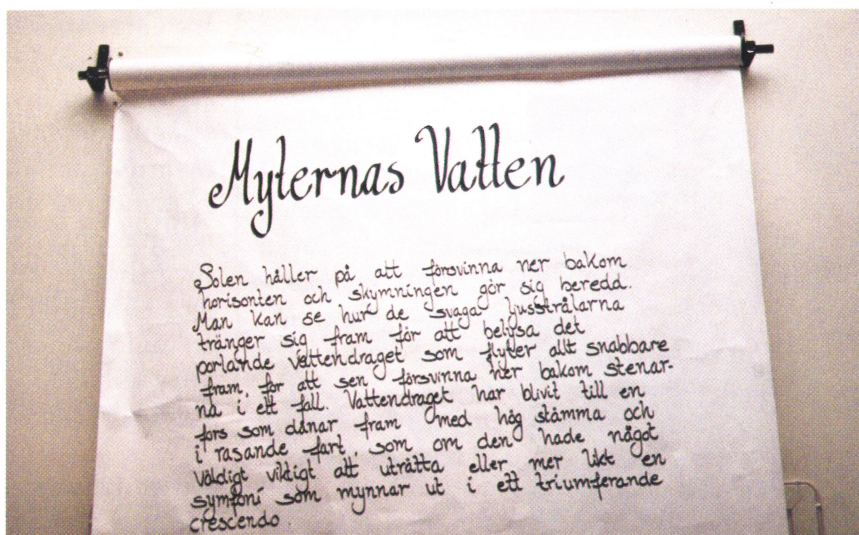 Myternas Vatten
Solen håller på att försvinna ner bakom
horisonten och skymningen gör sig beredd.
Man kan se hur de svaga ljusstrålarna
tränger sig fram för att belysa det
porlande vattendraget som flyter allt snabbare
fram, för att sen försvinna ner bakom stenar-
na i ett fall. Vattendraget har blivit till en
fors som dånar fram med hög stämma och
i rasande fart, som om den hade något
väldigt viktigt att uträtta eller mer likt en
symfoni som mynnar ut i ett triumferande
crescendo.